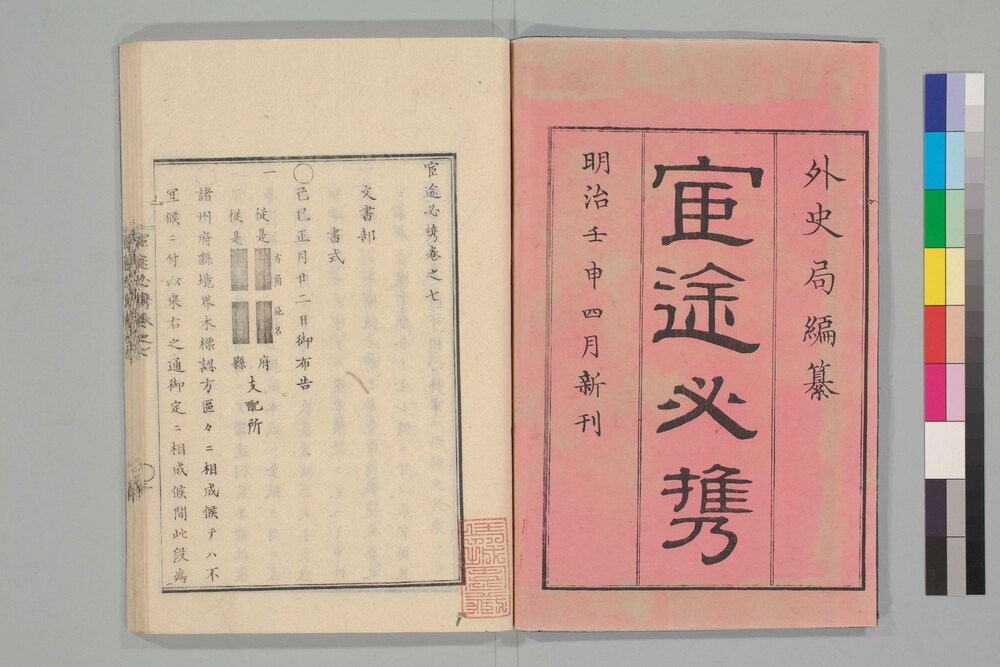 外史局編纂
官途必携
明治壬申四月新刊
官途必携卷之七
文書部
書式
〇己巳正月廿二日御布告
一
從是
方角
地名
府
從是
縣
支配所
諸州府縣境界木標認方區々ニ相成候テハ不
冝候ニ付以来右之通御定ニ相成候間此段為